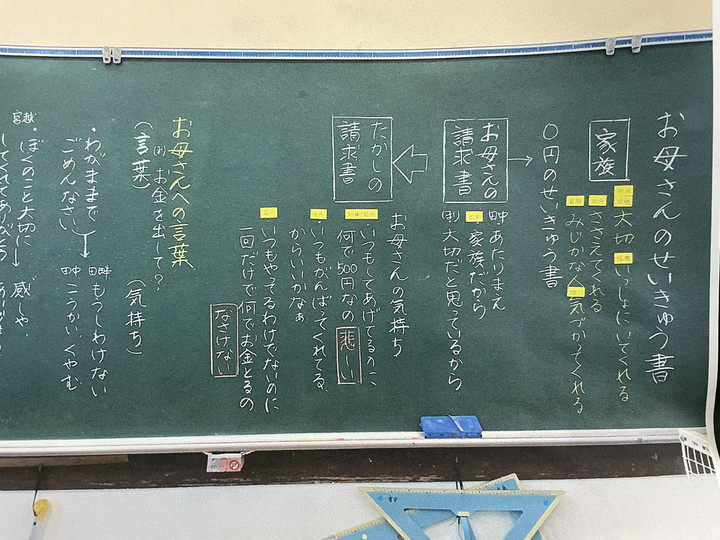 お母さんのせいきゅう書
家族
大切 いっしょにいてくれる
ささえてくれる
みじかな 気づかてくれる
〇円のせいきゅう書
お母さんの
請求書
あたりまえ
・家族だから
大切だと思っているから
たかしの
請求書
お母さんの気持ち
いつもしてあげてるのに
何で500円なの 悲しい
いつもがんばってくれてる
からいいかなぁ
いつもやってるわけでないのに
一回だけで何でお金とるの
なさけない
お母さんへの言葉
お金を出して?
(言葉) (気持ち)
・わがままで もうしわけない
ごめんなさい 田中 こうかい、くやむ
・ぼくのこと大切に 感しゃ